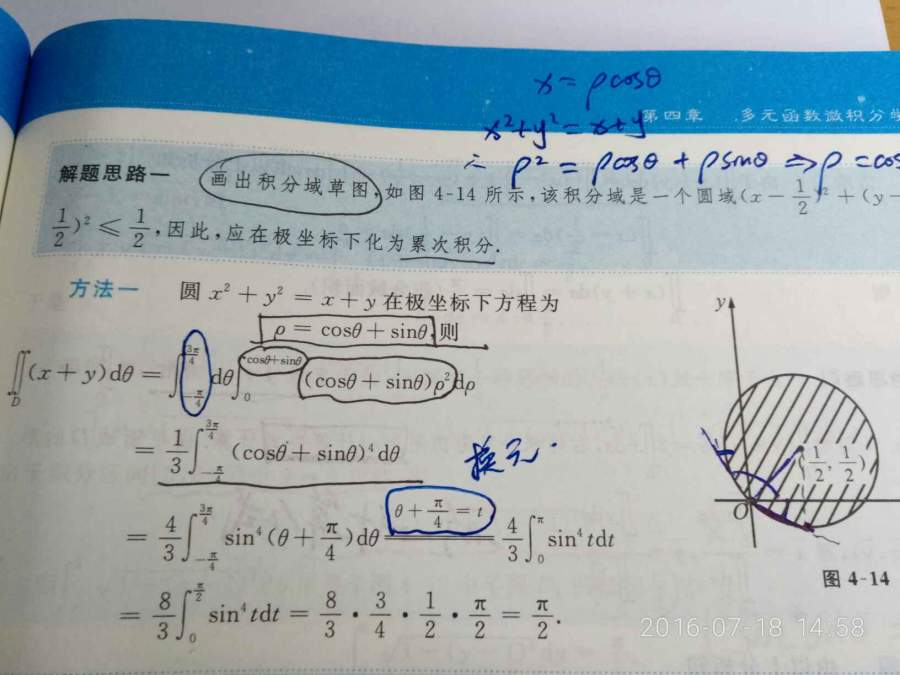 x = ρcosθ
第四章 多元函数微积分学
x² + y² = x + y
∴ ρ² = ρcosθ + ρsinθ ⇒ ρ = cos
解题思路一 画出积分域草图,如图 4-14 所示,该积分域是一个圆域(x − 1/2)² + (y −
1/2)² ≤ 1/2,因此,应在极坐标下化为累次积分.
方法一 圆 x² + y² = x + y 在极坐标下方程为
ρ = cosθ + sinθ,则
∬_D (x + y)dθ = ∫_{-π/4}^{3π/4} dθ ∫_0^{cosθ+sinθ} (cosθ + sinθ)ρ²dρ
= 1/3 ∫_{-π/4}^{3π/4} (cosθ + sinθ)⁴dθ
换元.
= 4/3 ∫_{-π/4}^{3π/4} sin⁴(θ + π/4)dθ θ + π/4 = t 4/3 ∫_0^π sin⁴tdt
= 8/3 ∫_0^{π/2} sin⁴tdt = 8/3 · 3/4 · 1/2 · π/2 = π/2.
y
(1/2, 1/2)
O
图 4-14
2016-07-18 14:58